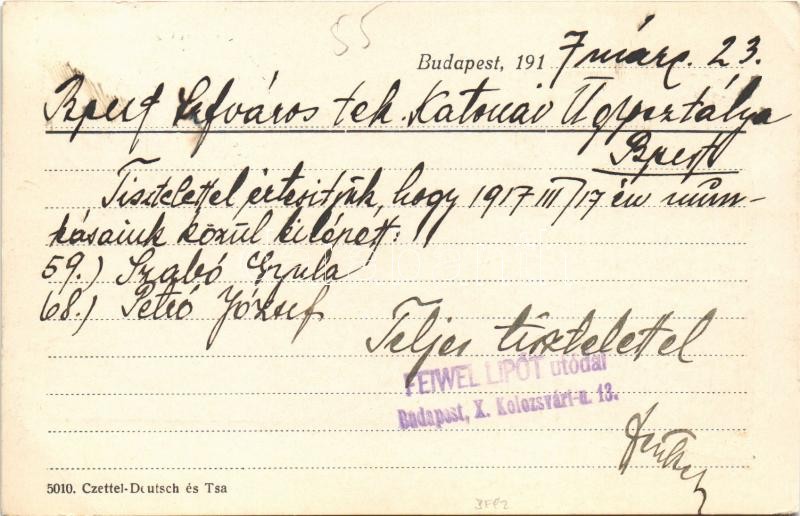 55
Budapest, 1917 márc. 23.
Bpest Szfváros tek. Katonai Ügyosztálya
Bpest
Tisztelettel értesitjük, hogy 1917 III/17 én mun-
kásaink közül kilépett:
59.) Szabó Gyula
68.) Pető József
Teljes tisztelettel
FEIWEL LIPÓT utódai
Budapest, X. Kolozsvári-u. 13.
5010. Czettel-Deutsch és Tsa